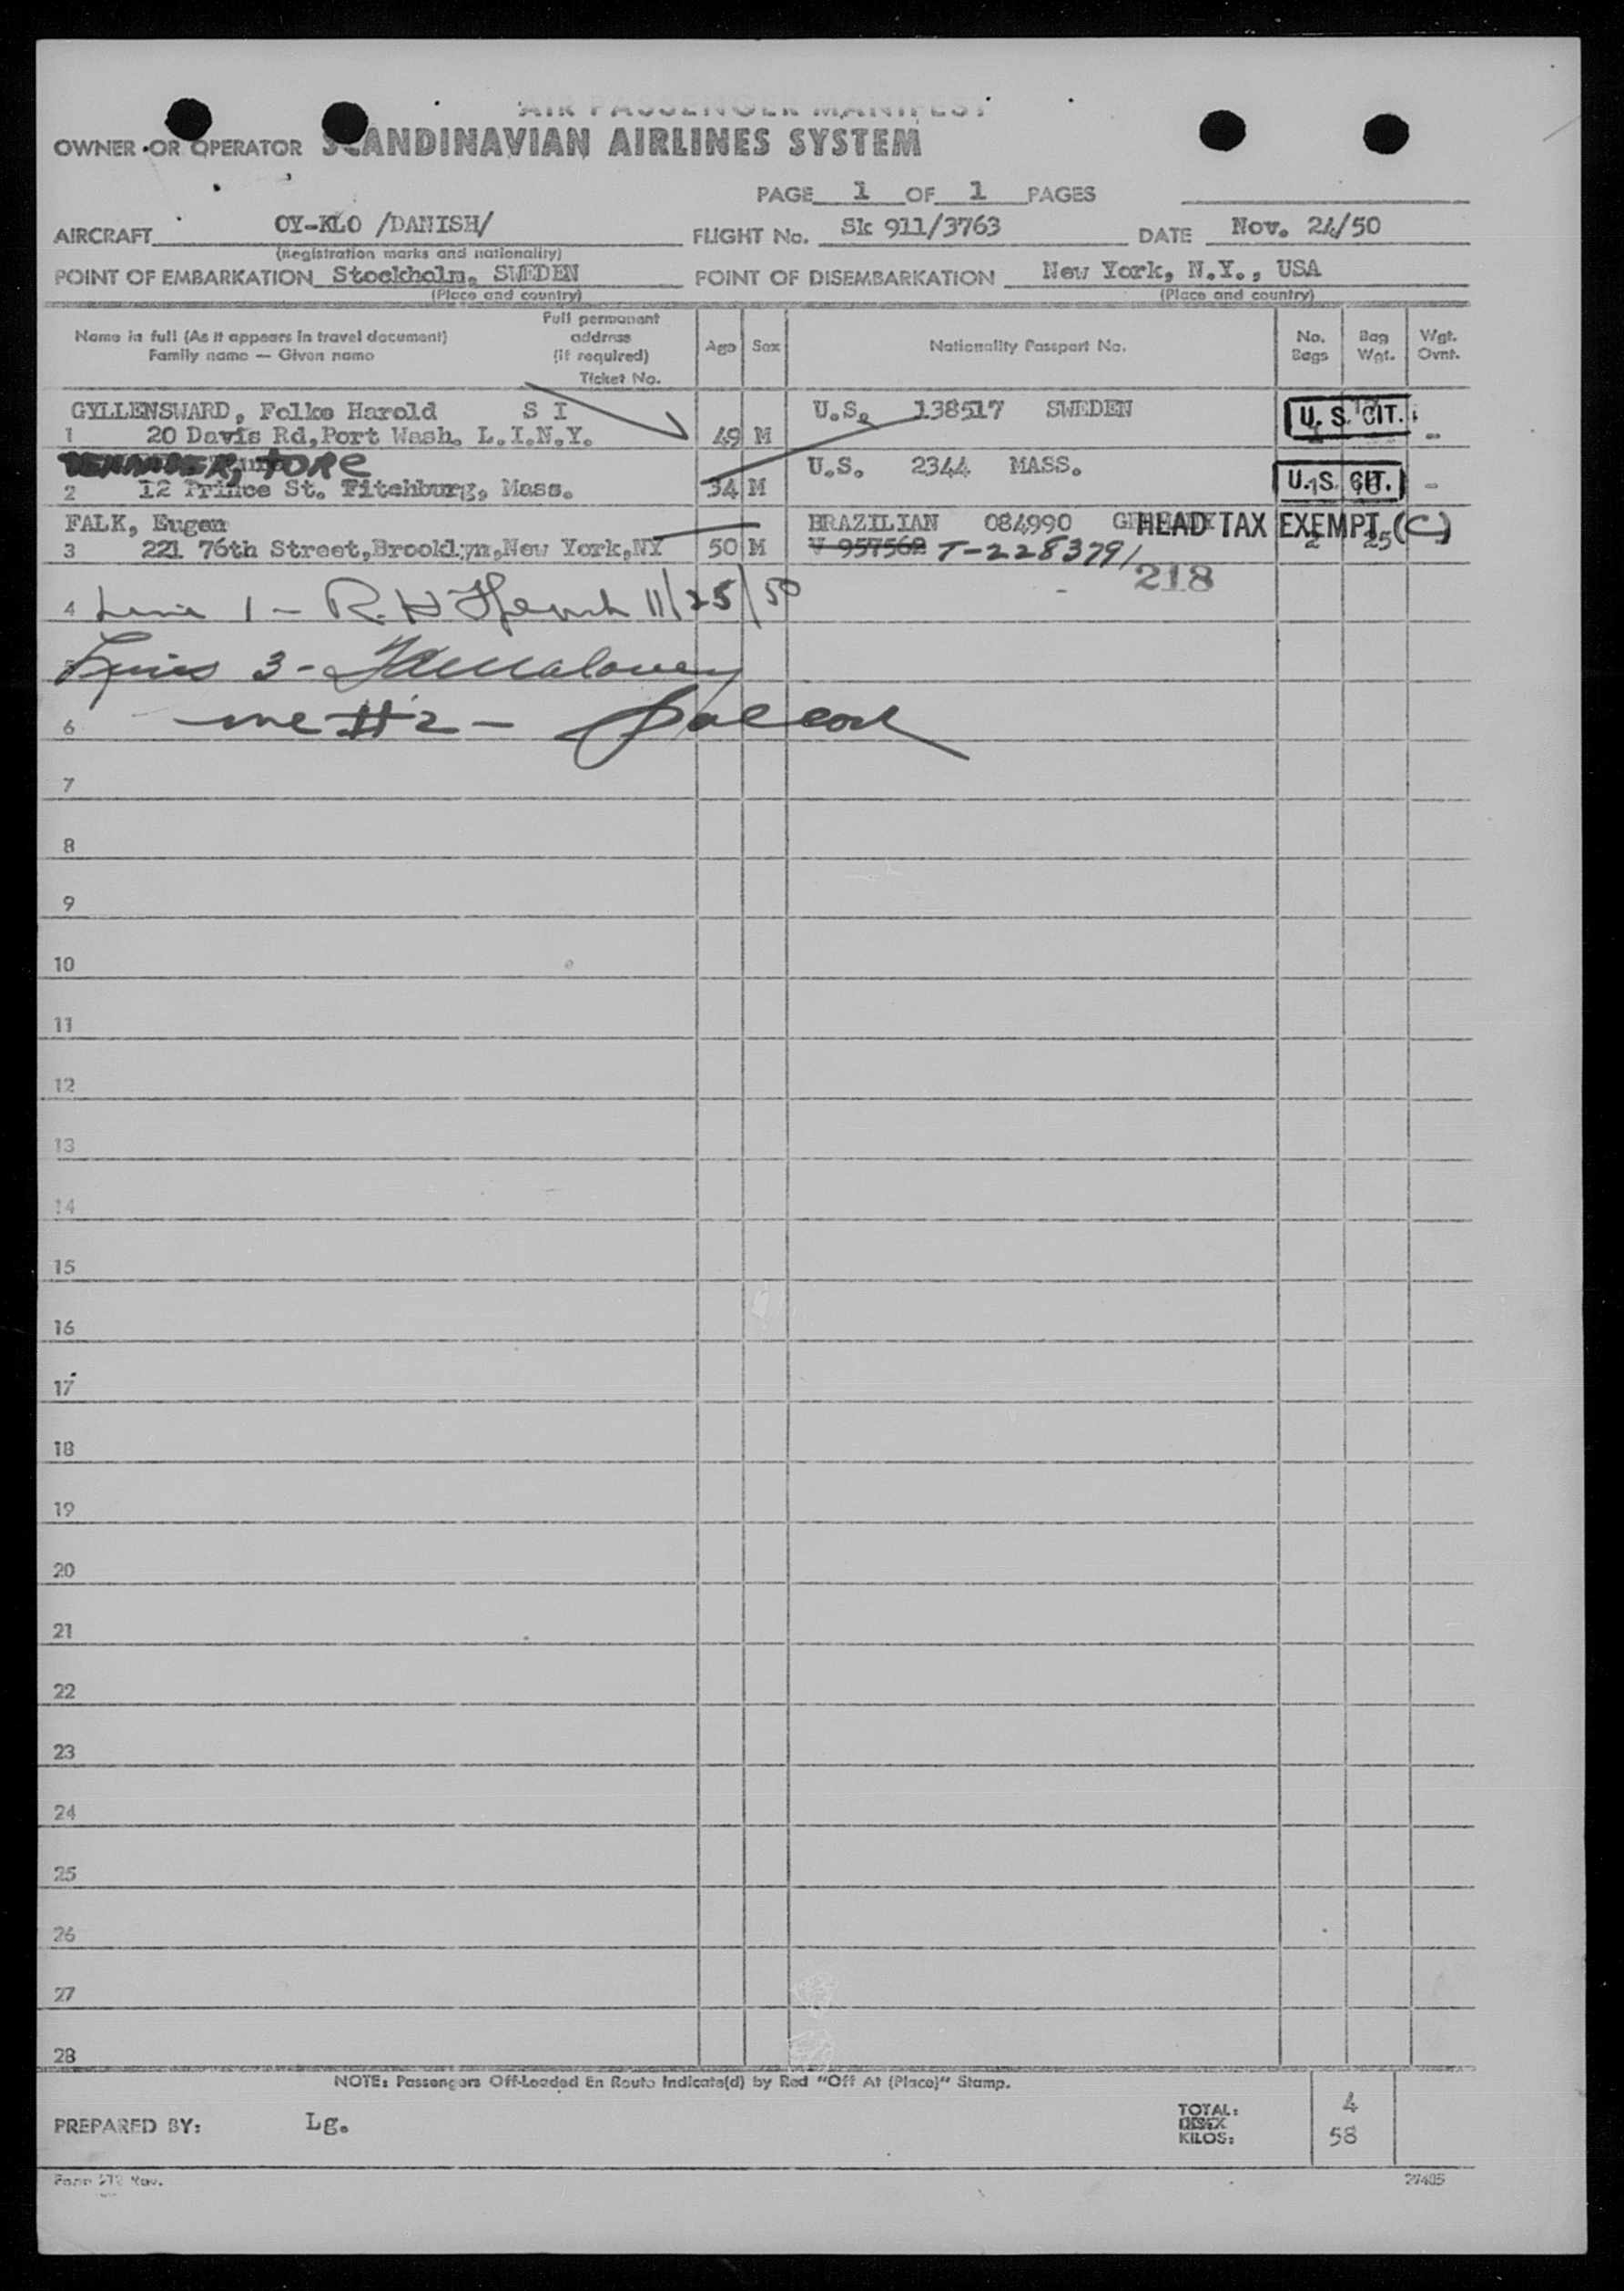 AIR PASSENGER MANIFEST
OWNER OR OPERATOR SCANDINAVIAN AIRLINES SYSTEM
PAGE 1 OF 1 PAGES
AIRCRAFT OY-KLO /DANISH/ FLIGHT No. Sk 911/3763 DATE Nov. 24/50
(Registration marks and nationality)
POINT OF EMBARKATION Stockholm, SWEDEN POINT OF DISEMBARKATION New York, N.Y., USA
(Place and country) (Place and country)
Name in full (As it appears in travel document) Family name — Given name Full permanent address (if required) Ticket No. Age Sex Nationality Passport No. No. Bags Bag Wgt. Wgt. Ovnt.
GYLLENSWARD, Folke Harold S I U.S. 138517 SWEDEN U. S. CIT.
1 20 Davis Rd,Port Wash. L.I.N.Y. 49 M -
TORE U.S. 2344 MASS. U. S. CIT.
2 12 Prince St. Fitchburg, Mass. 34 M -
FALK, Eugen BRAZILIAN 084990 HEAD TAX EXEMPT (C)
3 221 76th Street,Brooklyn,New York,NY 50 M V 957562 T-2283791 2 25
218
4 Line 1 - R. H. 11/25/50
5 Lines 3 - Maloney
6 Line #2 -
7
8
9
10
11
12
13
14
15
16
17
18
19
20
21
22
23
24
25
26
27
28
NOTE: Passengers Off-Loaded En Route Indicate(d) by Red "Off At (Place)" Stamp.
PREPARED BY: Lg. TOTAL: 4
KILOS: 58
Form 272 Rev. 27405